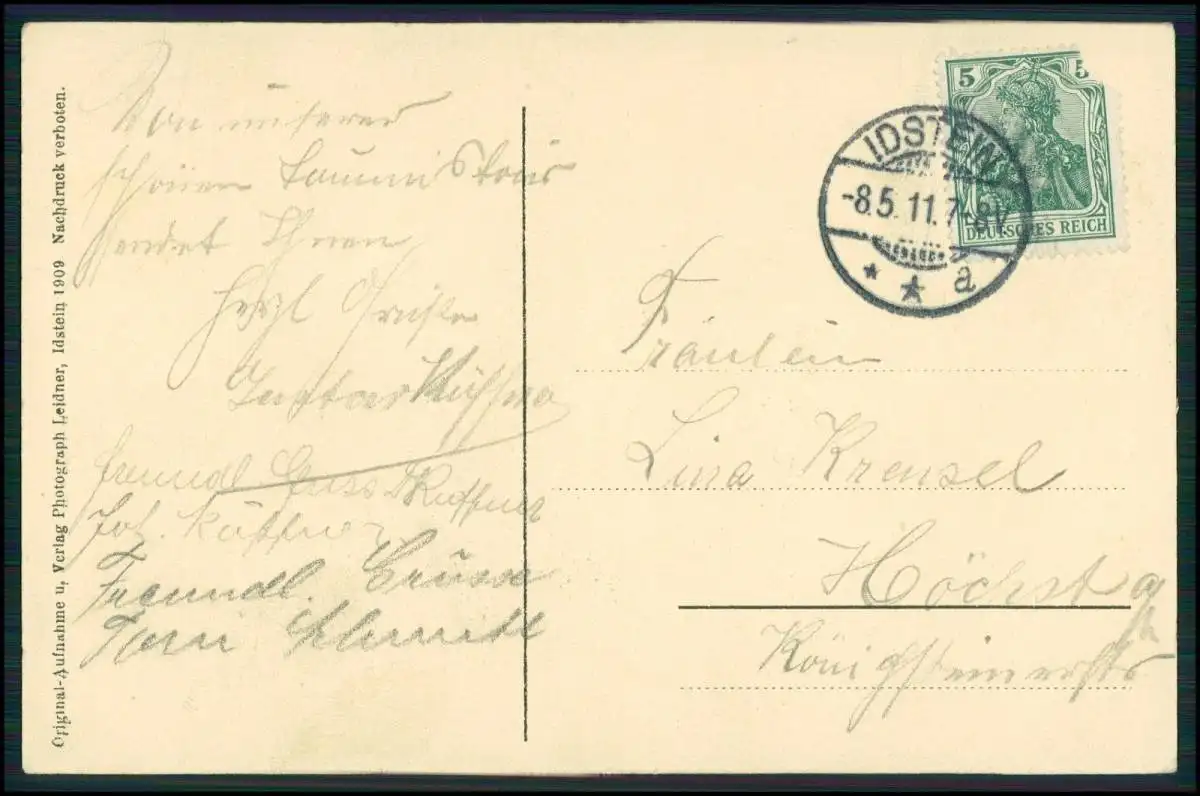 Original-Aufnahme u. Verlag Photograph Leidner, Idstein 1909 Nachdruck verboten.
Von unserer
schönen
sendet Ihnen
Herzl Grüsse
Gustav
freundl Gruss
Joh. Küffner
Freundl. Grüsse
Schmidt
5 5
DEUTSCHES REICH
IDSTEIN
-8.5.11.7-8V
* * a
Fräulein
Lina Krensel
Höchst a
Königsteinerstr